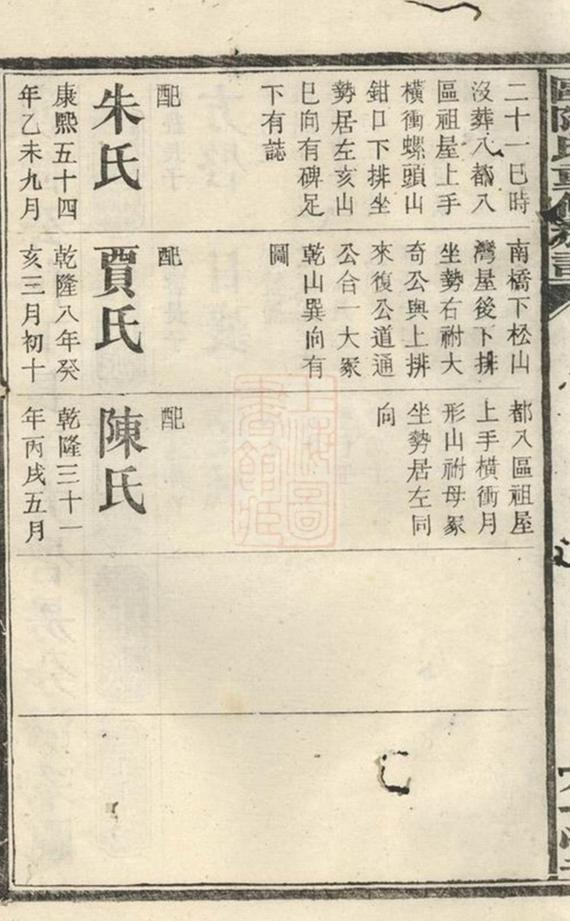 二十一巳時
沒葬八都八
區祖屋上手
橫衝螺頭山
鉗口下排坐
勢居左亥山
巳向有碑足
下有誌
配
朱氏
康熙五十四
年乙未九月
南橋下松山
灣屋後下排
坐勢右祔大
奇公與上排
來復公道通
公合一大冢
乾山巽向有
圖
配
賈氏
乾隆八年癸
亥三月初十
都八區祖屋
上手橫衝月
形山祔母冢
坐勢居左同
向
配
陳氏
乾隆三十一
年丙戌五月